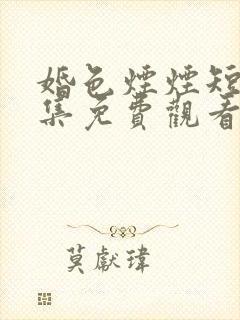 婚色煙煙短
集免費觀看
莫獻瑋